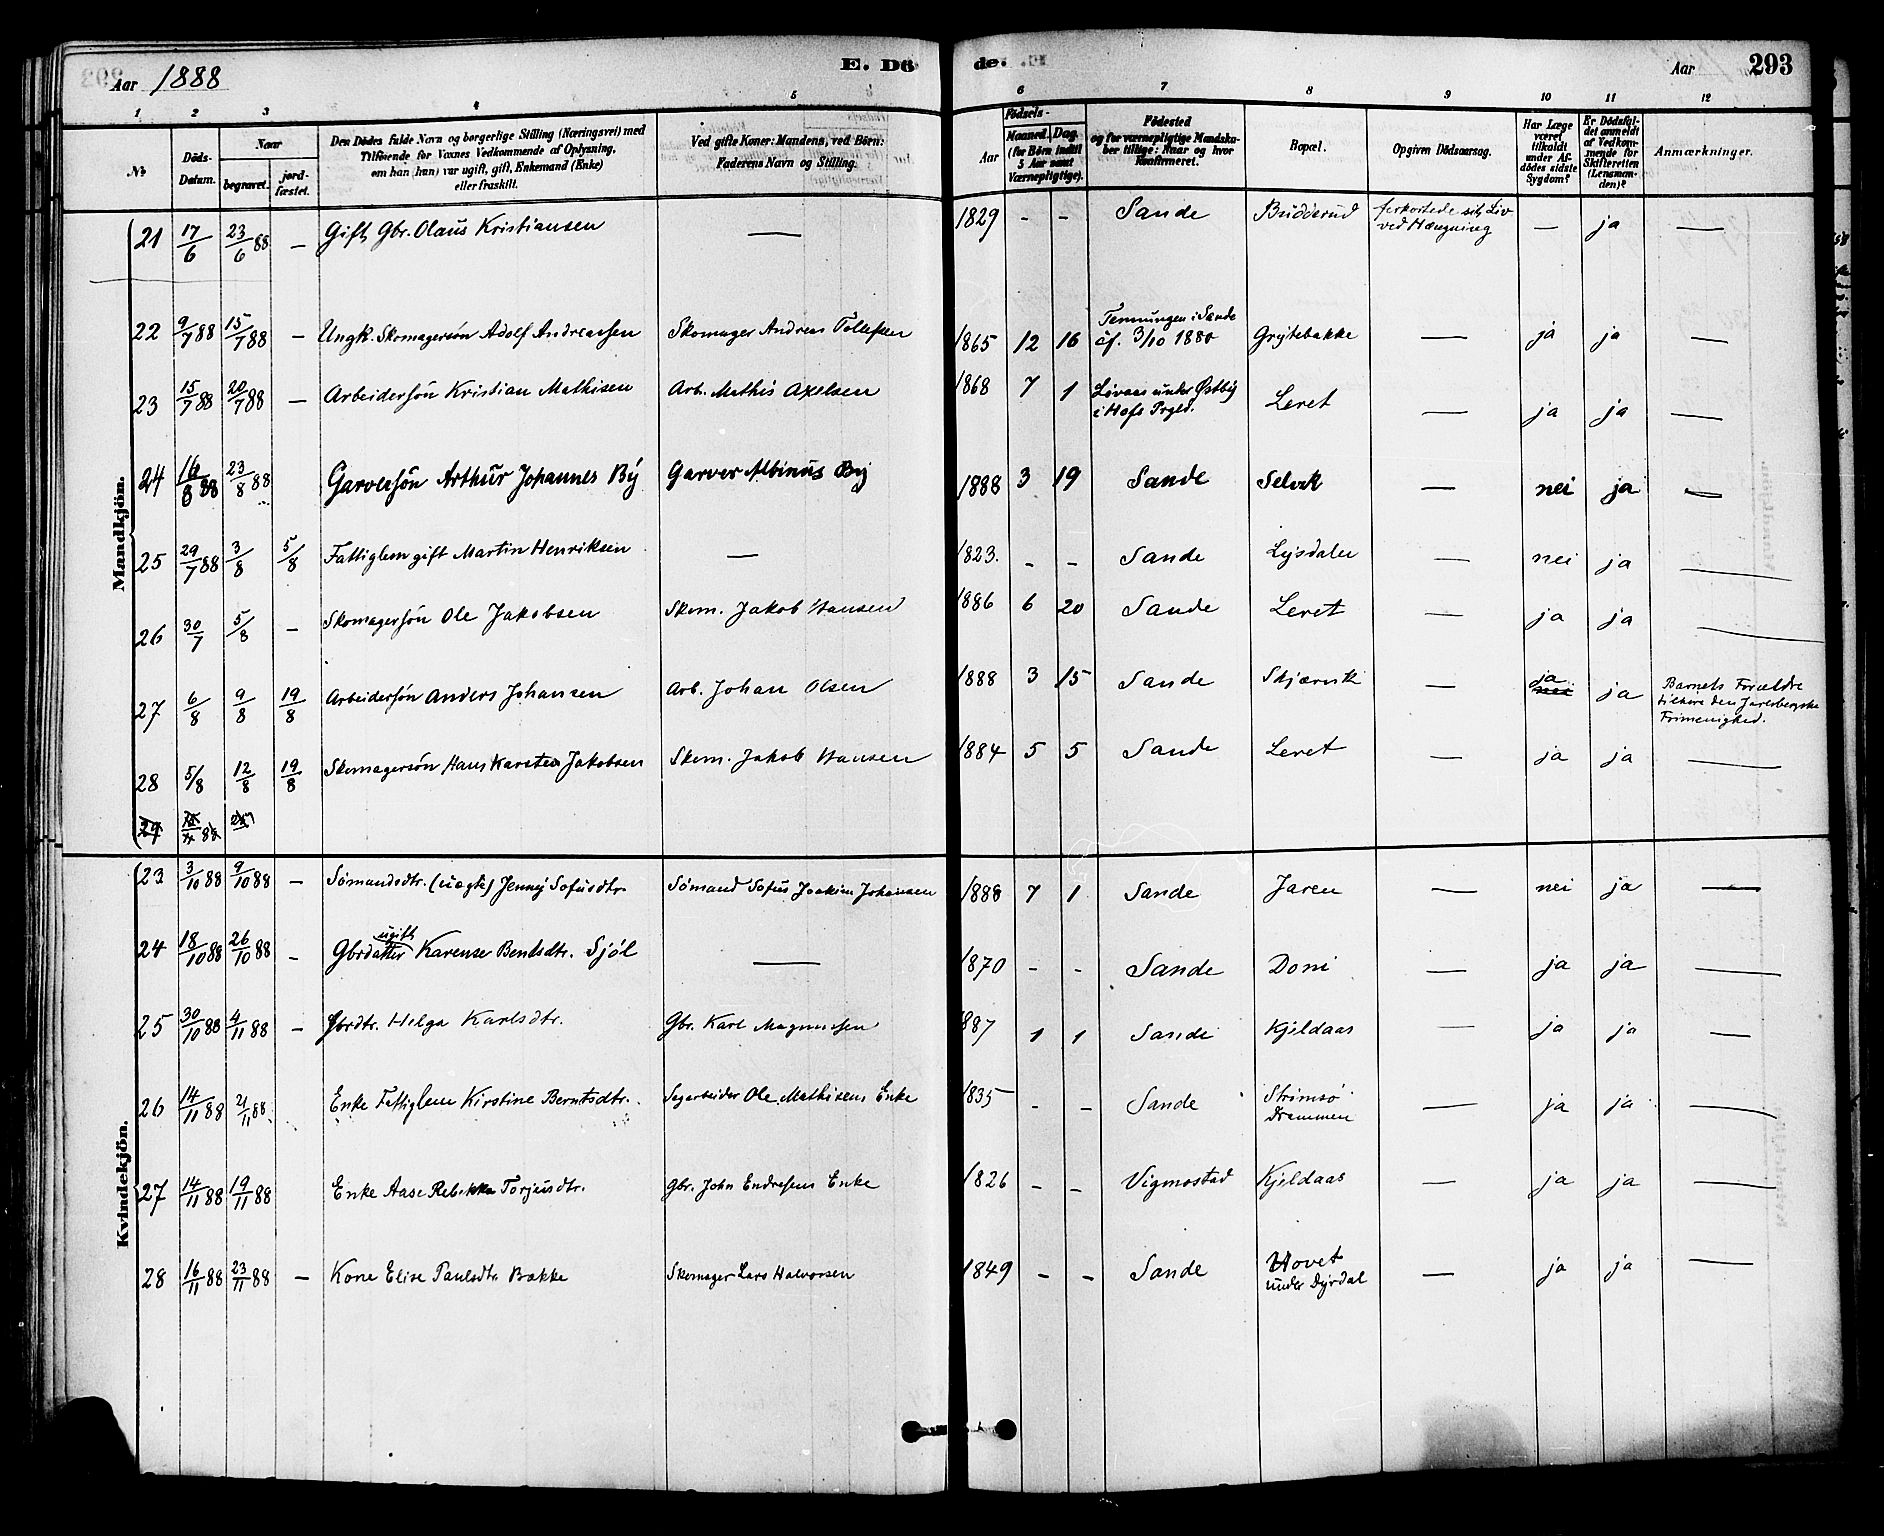 Aar 1888 E. Dö de. Aar 293
1 2 3 4 5 6 7 8 9 10 11 12
No
Döds-Datum.
Naar
begravet.
jord-fæstet.
Den Dödes fulde Navn og borgerlige Stilling (Næringsvei) med
Tilföiende for Voxnes Vedkommende af Oplysning,
om han (hun) var ugift, gift, Enkemand (Enke)
eller fraskilt.
Ved gifte Koner: Mandens, ved Börn:
Faderens Navn og Stilling.
Födsels-
Aar
Maaned. Dag.
(for Börn indtil
5 Aar samt
Værnepligtige).
Födested
og for værnepligtige Mandska-
ber tillige: Naar og hvor
Konfirmeret.
Bopæl.
Opgiven Dödsaarsag.
Har Læge
været
tilkaldt
under Af-
dödes sidste
Sygdom?
Er Dödsfal-
det anmeldt
af Vedkom-
mende for
Skifteretten
(Lensman-
den)?
Anmærkninger.
Mandkjön.
21 17/6 23/6 88 — Gift Gbr. Olaus Kristiansen — 1829 - - Sande Buddsrud forkortede sit Liv ved Hængning — ja —
22 9/7 88 15/7 88 — Ungk. Skomagersøn Adolf Andreassen Skomager Andreas Tollefsen 1865 12 16 i Sande 3/10 1880 Grytebakke — ja ja —
23 15/7 88 20/7 88 — Arbeidersøn Kristian Mathisen Arb. Mathis Axelsen 1868 7 1 Løvaas under Østby i Hofs Prgld. Leret — ja ja —
24 16/8 88 23/8 88 Garversøn Arthur Johannes By Garver Albinus By 1888 3 19 Sande Selvik — nei ja —
25 29/7 88 3/8 5/8 Fattiglem gift Martin Henriksen — 1823. - - Sande — nei ja —
26 30/7 5/8 — Skomagersøn Ole Jakobsen Skom. Jakob Hansen 1886 6 20 Sande Leret — ja ja —
27 6/8 9/8 19/8 Arbeidersøn Anders Johansen Arb. Johan Olsen 1888 3 15 Sande Skjærvik — ja nei ja Barnets Forældre tilhøre den Jarlsbergske Frimenighed.
28 5/8 12/8 19/8 Skomagersøn Hans Karsten Jakobsen Skom. Jakob Hansen 1884 5 5 Sande Leret — ja ja —
29 88
Kvindekjön.
23 3/10 88 9/10 88 — Sømandsdtr. (uægte) Jenny Sofusdtr. Sømand Sofus Joakim Johansen 1888 7 1 Sande Jaren — nei ja —
24 18/10 88 26/10 88 — ugift Gbrdatter Karense Bentsdtr. Sjøl — 1870 - - Sande Doni — ja ja —
25 30/10 88 4/11 88 — Gbrdtr. Helga Karlsdtr. Gbr. Karl Magnussen 887 1 1 Sande Kjeldaas — ja ja —
26 14/11 88 21/11 88. Enke Fattiglem Kirstine Berntsdtr. Sagarbeider Ole Mathisens Enke 1835 - - Sande Strømsø Drammen — ja ja —
27 14/11 88 19/11 88 Enke Aase Rebekka Torjusdtr. Gbr. John Endresens Enke 1826 - - Vigmostad Kjeldaas — ja ja —
28 16/11 88 23/11 88 — Kone Elise Paulsdtr Bakke Skomager Lars Halvorsen 1849 - - Sande Hovet under Dyrdal — ja ja —